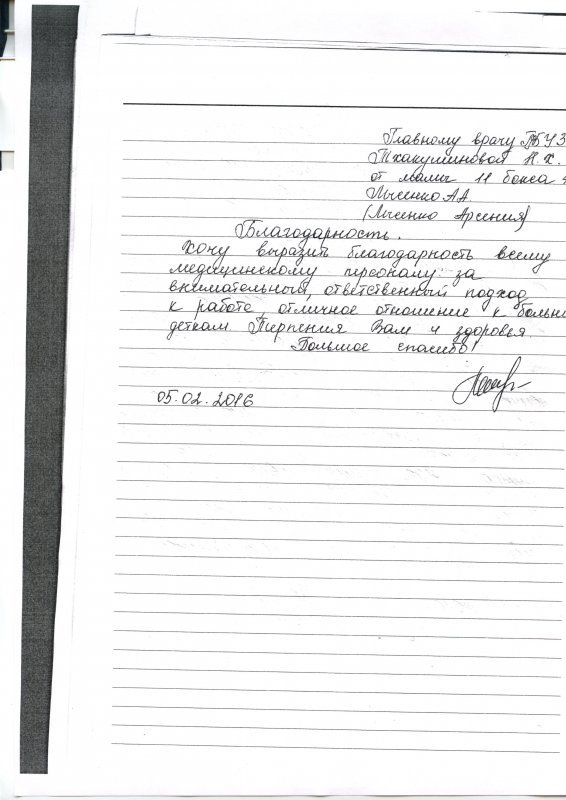 Главному врачу ГБУЗ
Тхакушиновой Н.Х.
от мамы 11 бокса
Лысенко А.А.
(Лысенко Арсения)
Благодарность.
Хочу выразить благодарность всему
медицинскому персоналу за
внимательный, ответственный подход
к работе, отличное отношение к больн
деткам. Терпения Вам и здоровья.
Большое спасибо!
05.02.2016